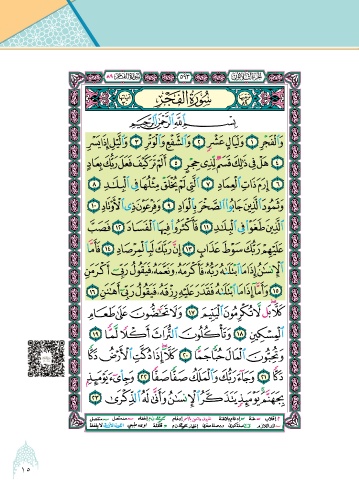 سُورَةُ الفَجْرِ
بِسْمِ اللَّهِ الرَّحْمَٰنِ الرَّحِيمِ
وَالْفَجْرِ ١ وَلَيَالٍ عَشْرٍ ٢ وَالشَّفْعِ وَالْوَتْرِ ٣ وَاللَّيْلِ إِذَا يَسْرِ
٤ هَلْ فِي ذَٰلِكَ قَسَمٌ لِّذِي حِجْرٍ ٥ أَلَمْ تَرَ كَيْفَ فَعَلَ رَبُّكَ بِعَادٍ
٦ إِرَمَ ذَاتِ الْعِمَادِ ٧ الَّتِي لَمْ يُخْلَقْ مِثْلُهَا فِي الْبِلَادِ ٨
وَثَمُودَ الَّذِينَ جَابُوا الصَّخْرَ بِالْوَادِ ٩ وَفِرْعَوْنَ ذِي الْأَوْتَادِ ١٠
الَّذِينَ طَغَوْا فِي الْبِلَادِ ١١ فَأَكْثَرُوا فِيهَا الْفَسَادَ ١٢ فَصَبَّ
عَلَيْهِمْ رَبُّكَ سَوْطَ عَذَابٍ ١٣ إِنَّ رَبَّكَ لَبِالْمِرْصَادِ ١٤ فَأَمَّا
الْإِنسَٰنُ إِذَا مَا ابْتَلَىٰهُ رَبُّهُ فَأَكْرَمَهُ وَنَعَّمَهُ فَيَقُولُ رَبِّي أَكْرَمَنِ
١٥ وَأَمَّا إِذَا مَا ابْتَلَىٰهُ فَقَدَرَ عَلَيْهِ رِزْقَهُ فَيَقُولُ رَبِّي أَهَٰنَنِ ١٦
كَلَّا بَل لَّا تُكْرِمُونَ الْيَتِيمَ ١٧ وَلَا تَحَٰضُّونَ عَلَىٰ طَعَامِ
الْمِسْكِينِ ١٨ وَتَأْكُلُونَ التُّرَاثَ أَكْلًا لَّمًّا ١٩
وَتُحِبُّونَ الْمَالَ حُبًّا جَمًّا ٢٠ كَلَّا إِذَا دُكَّتِ الْأَرْضُ دَكًّا
دَكًّا ٢١ وَجَاءَ رَبُّكَ وَالْمَلَكُ صَفًّا صَفًّا ٢٢ وَجِايْءَ يَوْمَئِذٍ
بِجَهَنَّمَ يَوْمَئِذٍ يَتَذَكَّرُ الْإِنسَٰنُ وَأَنَّىٰ لَهُ الذِّكْرَىٰ ٢٣
١٥